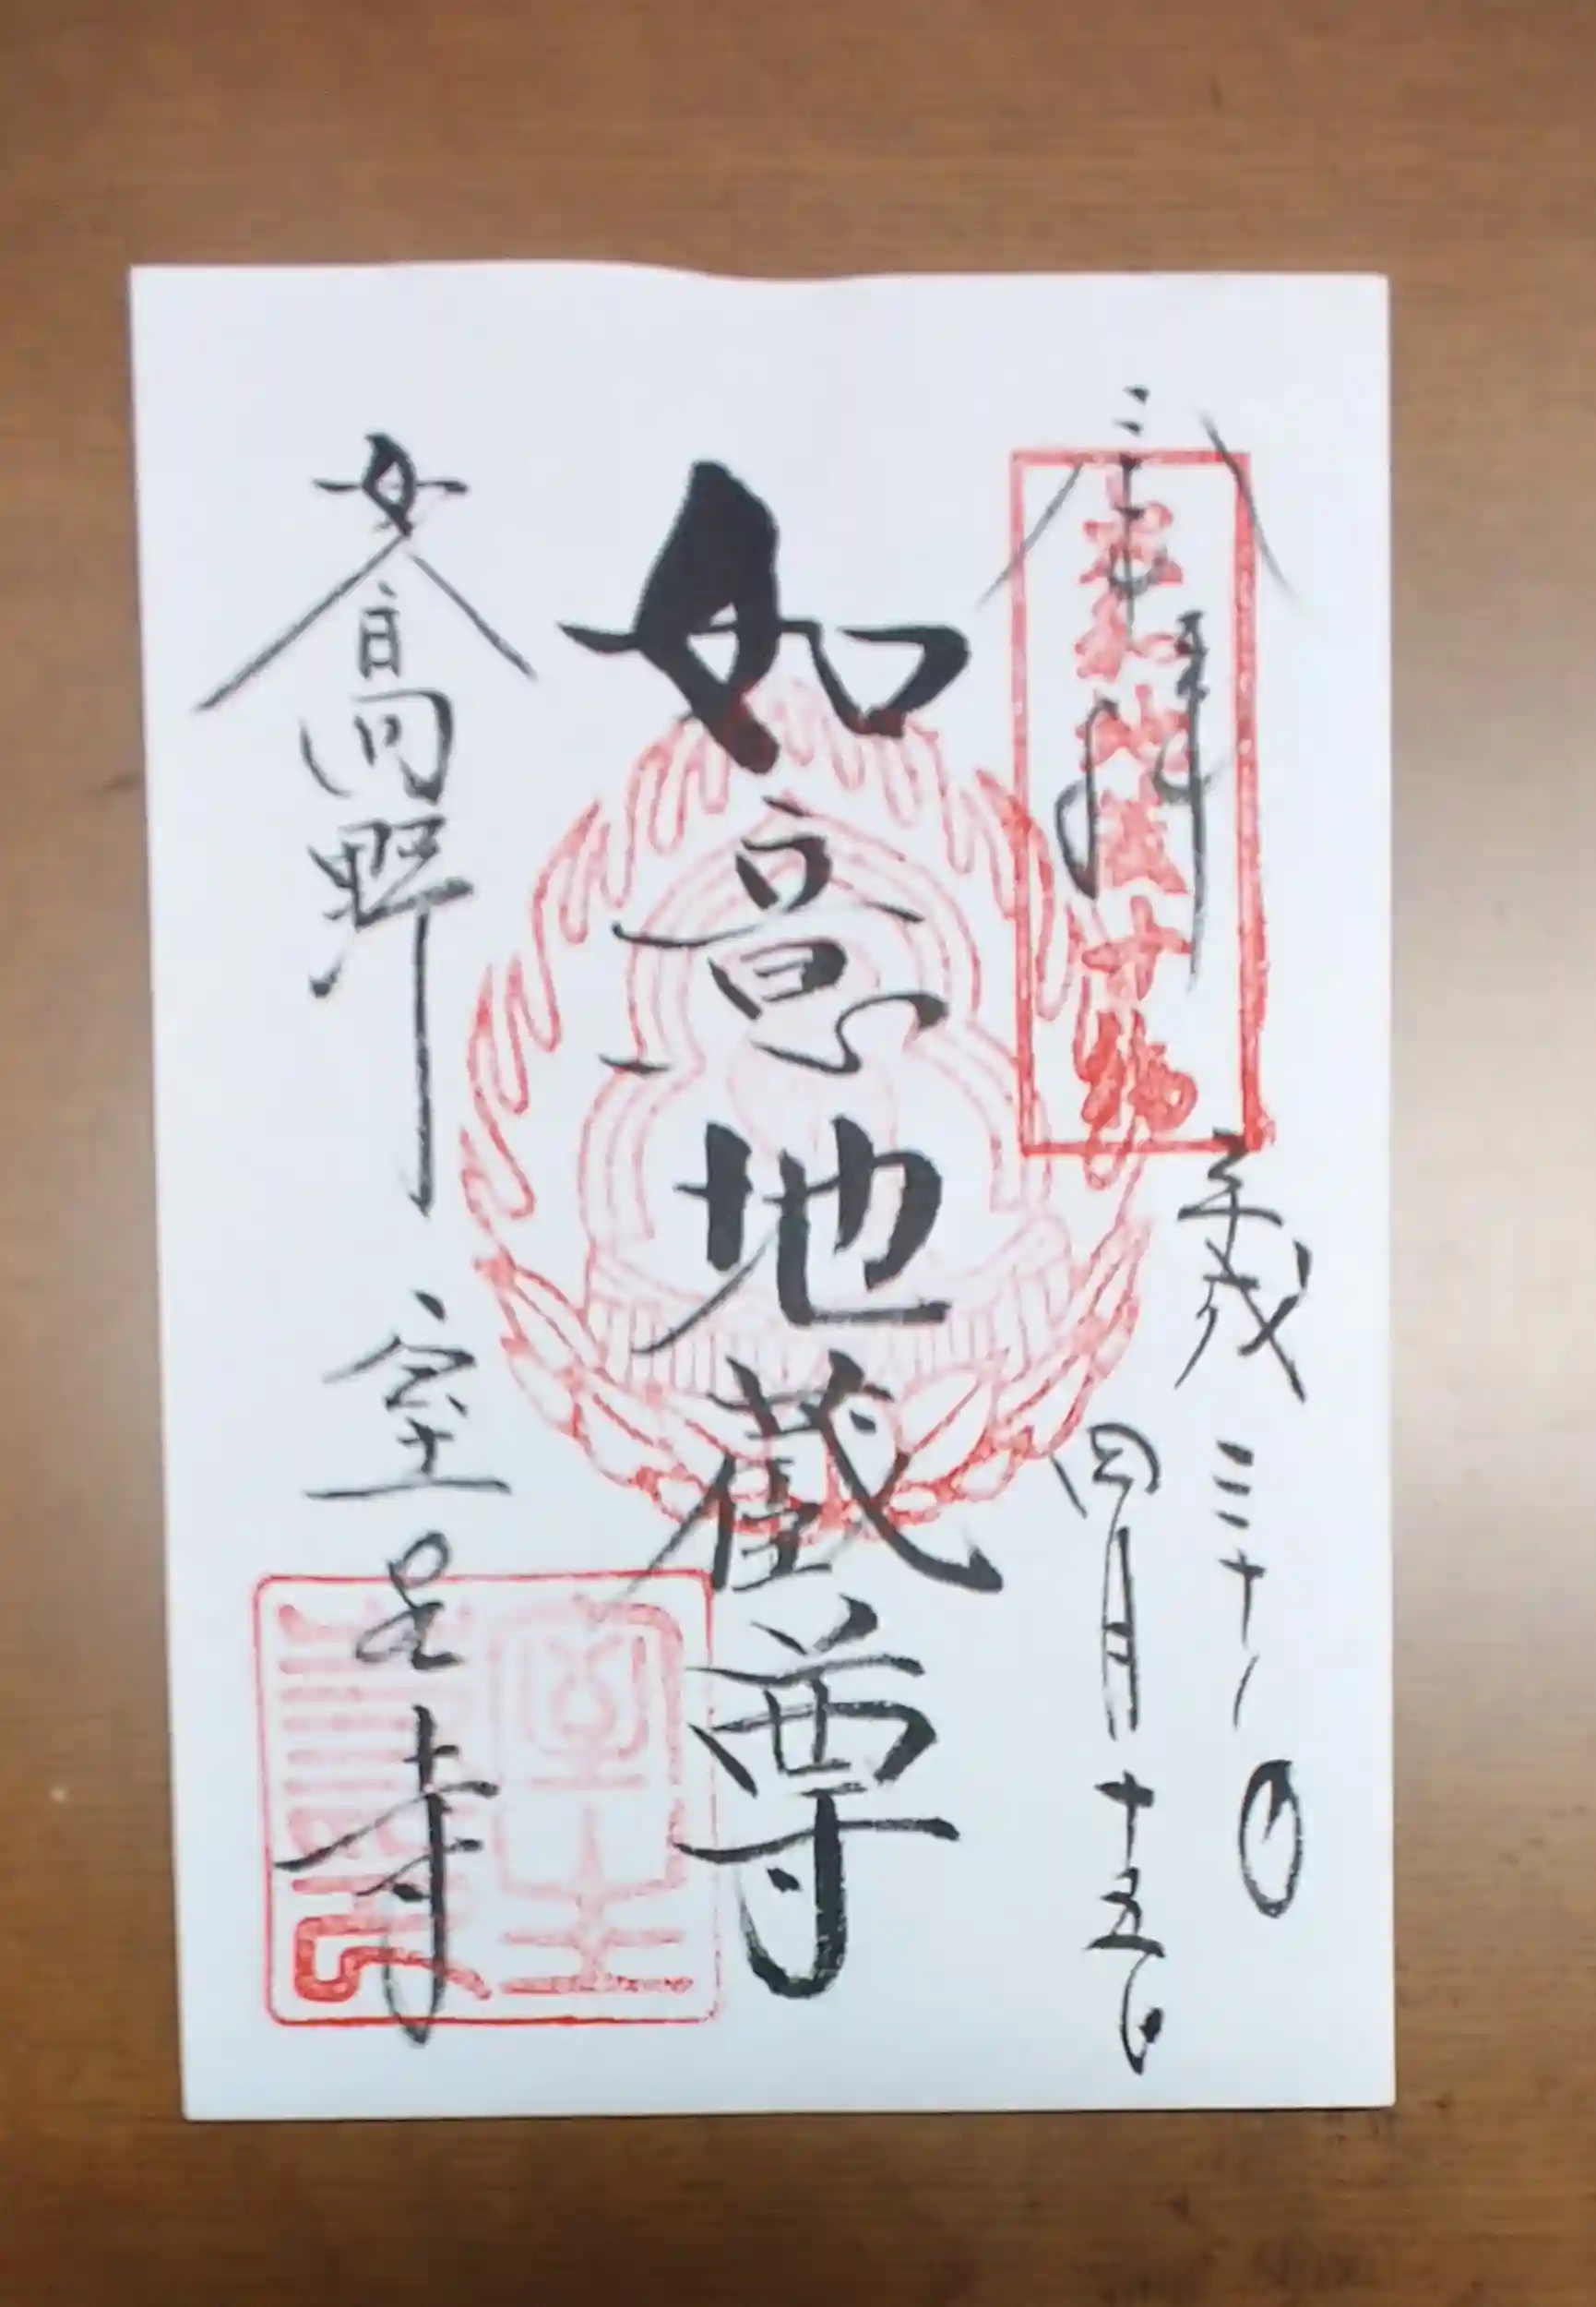 奉拝
大和地蔵十福
平成三十年
四月十五日
如意地蔵尊
女人高野 室生寺